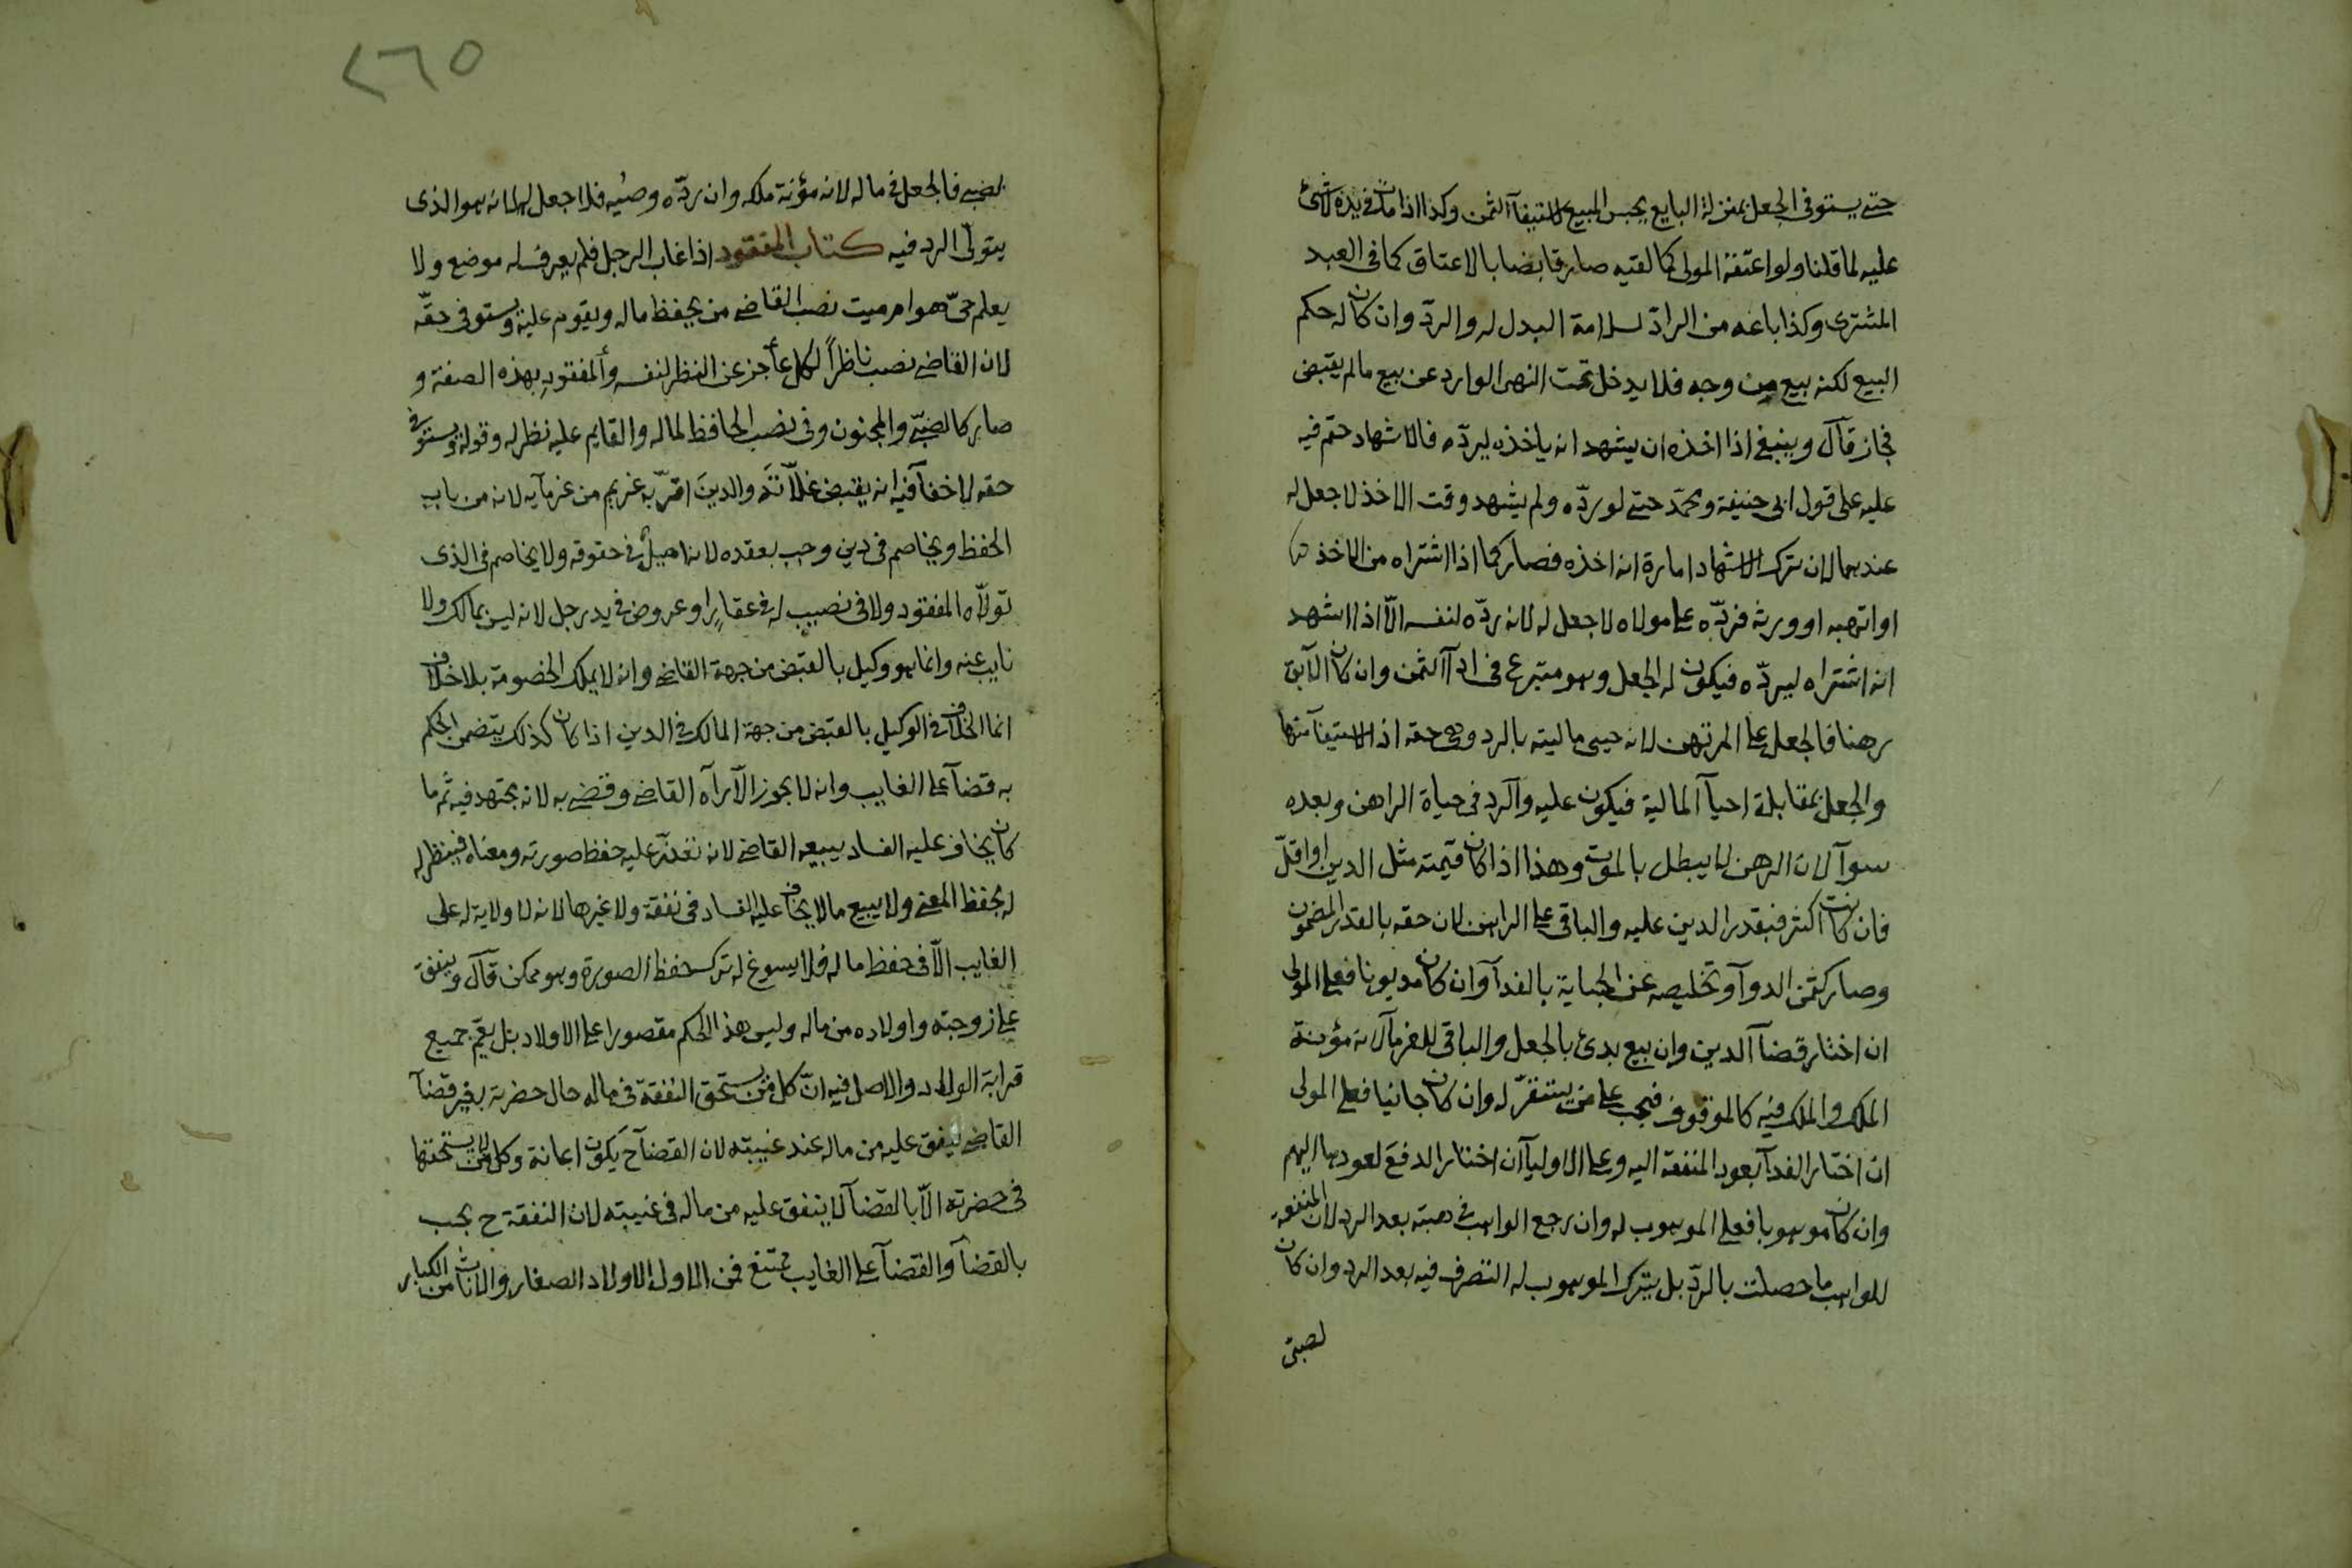 حتى يستوفى الجعل بمنزلة البايع يحبس المبيع لاستيفآ الثمن وكذا اذا مات فى يده لا شئ
عليه لما قلنا ولو اعتقه المولى كما لقيه صار قابضا بالاعتاق كما فى العبد
المشترى وكذا باعه من الرادّ لسلامة البدل له والردّ وان كان له حكم
البيع لكنه بيع من وجه فلا يدخل تحت النهى الوارد عن بيع ما لم يقبض
فجاز قآل وينبغى اذا اخذه ان يشهد انه ياخذه ليردّه فالاشهاد حتم فيه
عليه على قول ابى حنيفة ومحمّد حتى لو ردّه ولم يشهد وقت الاخذ لا جعل له
عندهما لان ترك الاشهاد امارة انه اخذه فصار كما اذا اشتراه من الاخذ
او اتهبه او ورثه فردّه على مولاه لا جعل له لانه ردّه لنفسه الّا اذا اشهد
انه اشتراه ليردّه فيكون له الجعل وهو متبرع فى ادآ الثمن وان كان الآبق
رهنا فالجعل على المرتهن لانه حيى ماليته بالرد وهى حقه اذ الاستيفآ منها
والجعل بمقابلة احيآ المالية فيكون عليه وآلرد فى حياة الراهن وبعده
سوآ لان الرهن لا يبطل بالموت وهذا اذا كان قيمته مثل الدين او اقلّ
فان كانت اكثر فبقدر الدين عليه والباقى على الراهن لان حقه بالقدر المضمون
وصار كثمن الدوآ وتخليصه عن الجناية بالفدآ وان كان مديونا فعلى المولى
ان اختار قضآ الدين وان بيع بدئ بالجعل والباقى للغرمآ لانه مؤنة
الملك والملك فيه كالموقوف فيجب على من يستقرّ له وان كان جانيا فعلى المولى
ان اختار الفدآ بعود المنفعة اليه وعلى الاوليآ ان اختار الدفع لعودها اليهم
وان كان موهوبا فعلى الموهوب له وان رجع الواهب فى هبته بعد الرد لان المنفعة
للواهب ما حصلت بالردّ بل بترك الموهوب له التصرف فيه بعد الرد وان كان
لصبىّ
٢٦٥
لصبى فالجعل فى ماله لانه مؤنة ملكه وان ردّه وصيّه فلا جعل له لانه هو الذى
يتولّى الرد فيه كتاب المفقود اذا غاب الرجل فلم يعرف له موضع ولا
يعلم حىّ هو ام ميت نصب القاضى من يحفظ ماله ويقوم عليه ويستوفى حقّه
لان القاضى نصب ناظراً لكل عاجز عن النظر لنفسه وألمفقود بهذه الصفة و
صار كالصبىّ والمجنون وفى نصب الحافظ لماله والقايم عليه نظر له وقوله ويستوفى
حقه لا خفآ فيه انه يقبض غلّاته والدين اقرّ به غريم من غرمآيه لانه من باب
الحفظ ويخاصم فى دين وجب بعقده لانه اصيلٌ فى حقوقه ولا يخاصم فى الذى
تولّاه المفقود ولا فى نصيب له فى عقارٍ او عروض فى يد رجل لانه ليس بمالك ولا
نايب عنه وانما هو وكيل بالقبض من جهة القاضى وانه لا يملك الخصومة بلا خلاف
انما الخلاف فى الوكيل بالقبض من جهة المالك فى الدين اذا كان كذلك يتضمن الحكم
به قضآ على الغايب وانه لا يجوز الّا رآه القاضى وقضى به لانه مجتهد فيه ثم ما
كان يخاف عليه الفساد يبيعه القاضى لانه تعذّر عليه حفظ صورته ومعناه فينظر له
له بحفظ المعنى ولا يبيع ما لا يخاف عليه الفساد فى نفقة ولا غيرها لانه لا ولاية له على
الغايب الّا فى حفظ ماله فلا يسوغ له ترك حفظ الصورة وهو ممكن قآل وينفق
على زوجته واولاده من ماله وليس هذا الحكم مقصورا على الاولاد بل يعمّ جميع
قرابة الولاد والاصل فيه انّ كل من يستحق النفقة فى ماله حال حضرته بغير قضآ
القاضى ينفق عليه من ماله عند غيبته لان القضآ ح يكون اعانة وكل من لا يستحقها
فى حضرته الّا بالقضآ لا ينفق عليه من ماله فى غيبته لان النفقة ح يجب
بالقضآ والقضآ على الغايب ممتنع فمن الاول الاولاد الصغار والاناث من الكبار